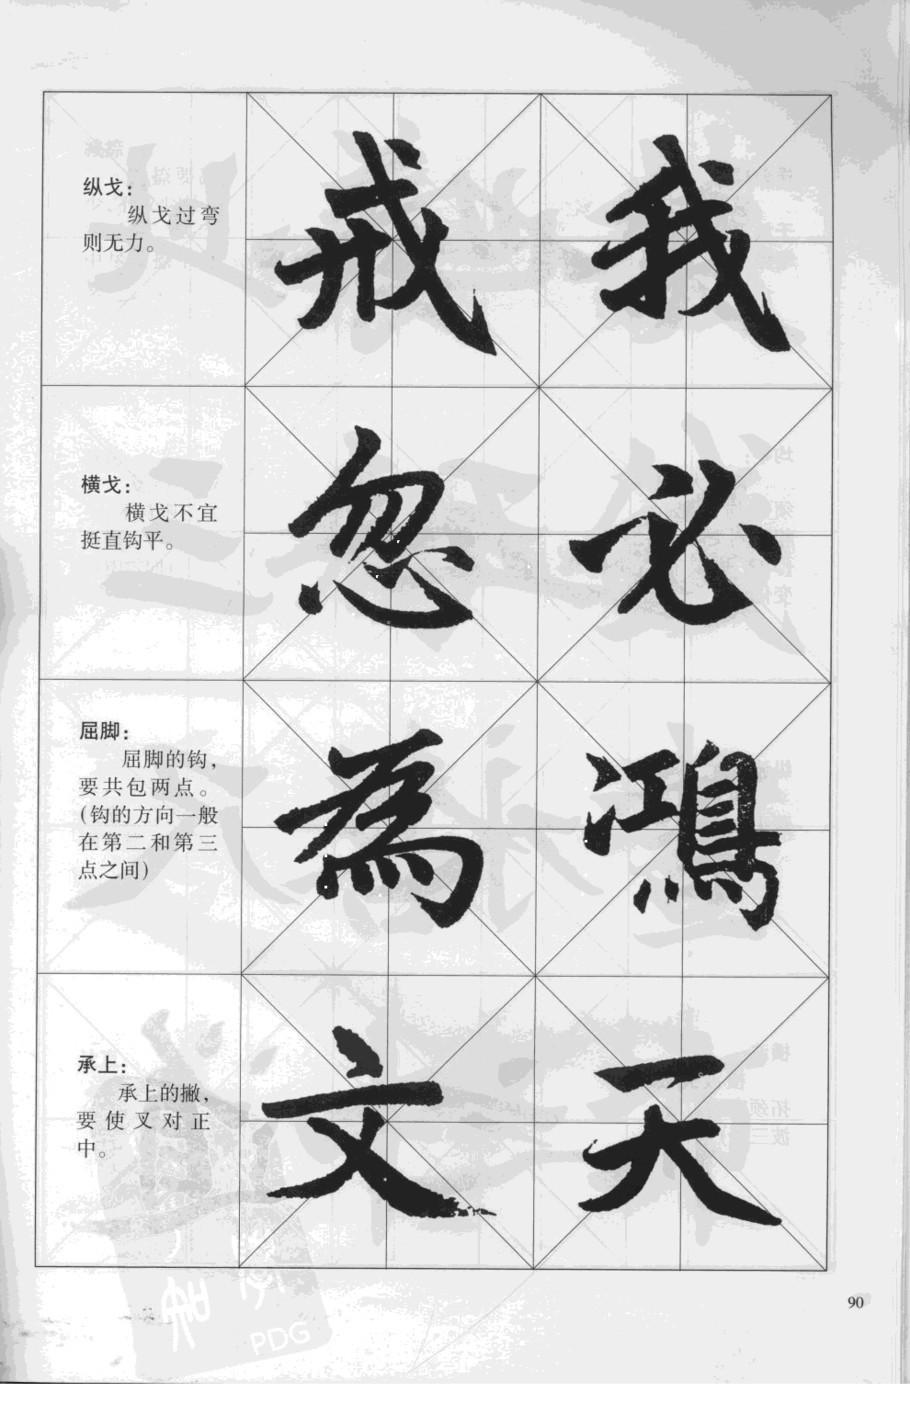 纵戈：
纵戈过弯
则无力。
戒 我
横戈：
横戈不宜
挺直钩平。
忽 必
屈脚：
屈脚的钩，
要共包两点。
(钩的方向一般
在第二和第三
点之间)
為 鴻
承上：
承上的撇，
要使叉对正
中。
文 天
90
PDG